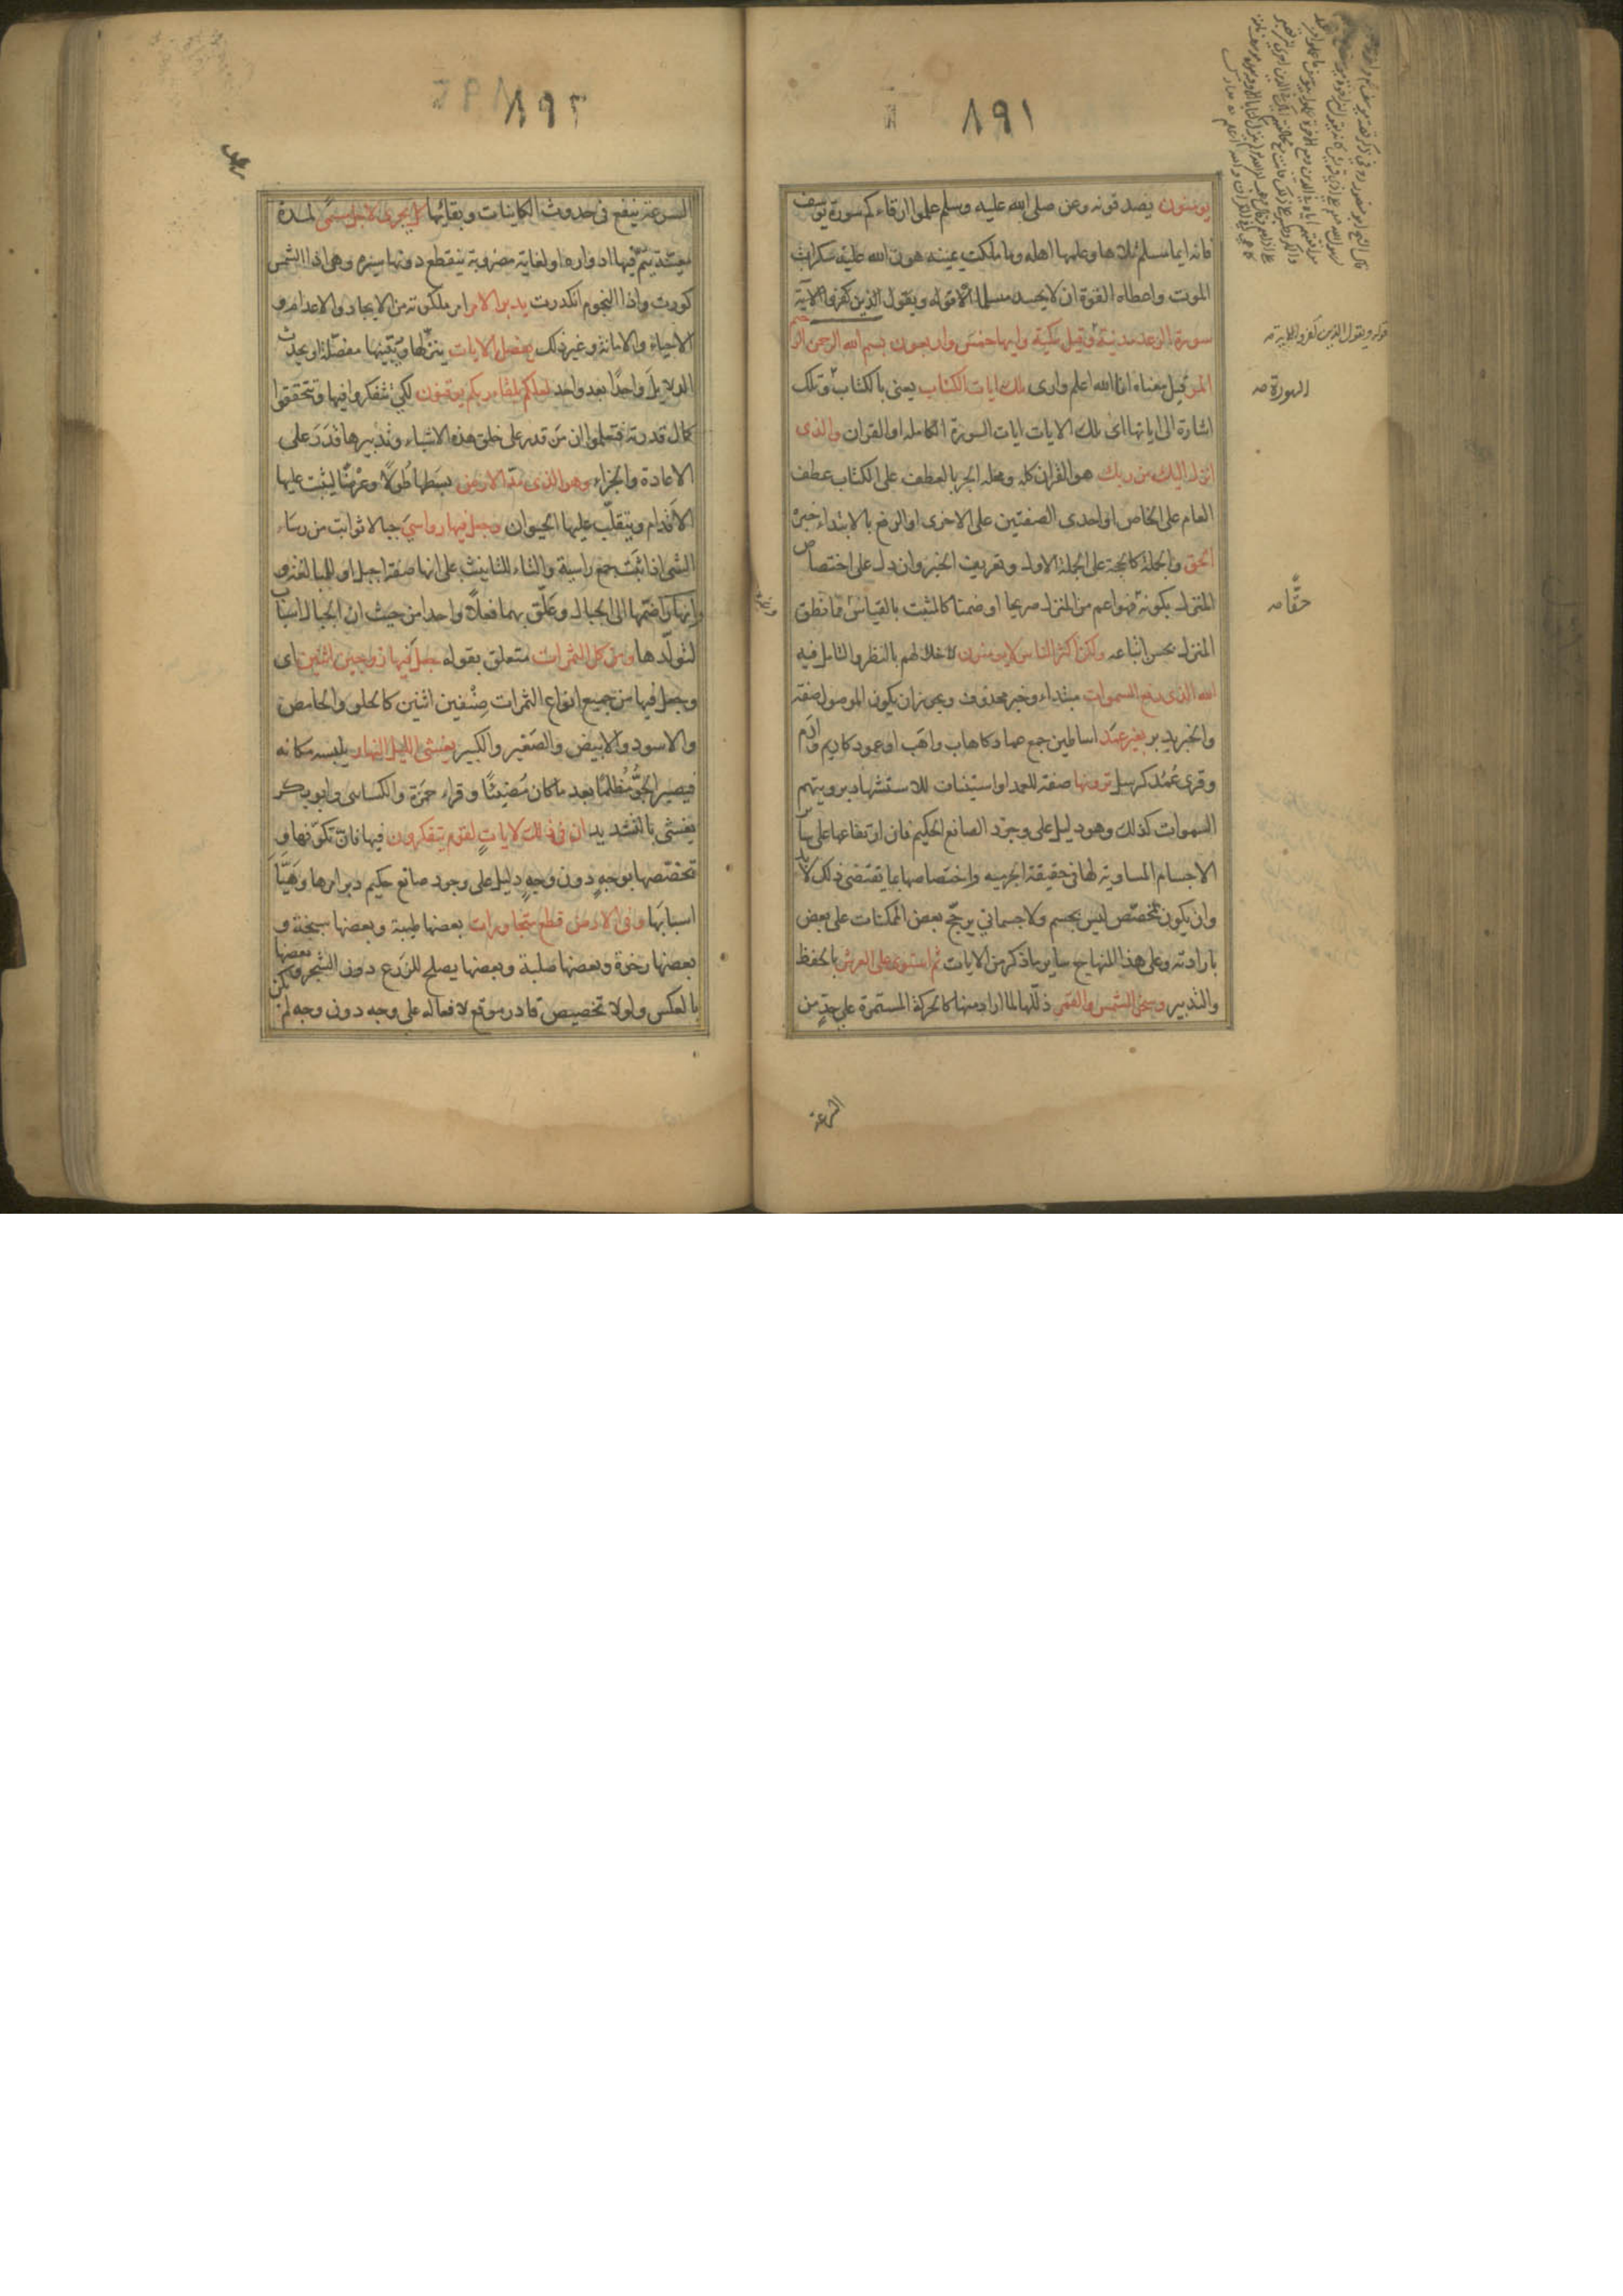 ١٩١
يومنون يصدقونه وعن صلى الله عليه وسلم علموا ارقاءكم سورة يوسف
فانه ايما مسلم تلاها وعلمها اهله وما ملكت يمينه هون الله عليه سكرات
الموت واعطاه القوة ان لا يحسد مسلما الا قوله ويقول الذين كفروا الآية
سورة الرعد مدنية وقيل مكية وايها خمس واربعون بسم الله الرحمن الرحيم
المر قيل معناه انا الله اعلم وارى تلك ايات الكتاب يعنى بالكتاب وتلك
اشارة الى اياتها اى تلك الايات ايات السورة الكاملة او القران والذى
انزل اليك من ربك هو القران كله ومحله الجر بالعطف على الكتاب عطف
العام على الخاص او احدى الصفتين على الاخرى او الرفع بالابتداء خبره
الحق والجملة كالحجة على الجملة الاولى وتعريف الخبر وان دل على اختصاص
المنزل بكونه فهو اعم من المنزل صريحا او ضمنا كالمثبت بالقياس مما نطق
المنزل بحسن اتباعه ولكن اكثر الناس لا يومنون لاخلالهم بالنظر والتامل فيه
الله الذى رفع السموات مبتداء وخبر محذوف ويجوز ان يكون الموصول صفة
والخبر يدبر بغير عمد اساطين جمع عماد كاهاب واهب او عمود كاديم وادم
وقرى عُمُد كرسل ترونها صفة للعمد او استيناف للاستشهاد برويتهم
السموات كذلك وهو دليل على وجود الصانع الحكيم فان ارتفاعها على ساير
الاجسام المساوية لها فى حقيقة الجرمية واختصاصها بما يقتضى ذلك لا بد
وان يكون بمخصّص ليس بجسم ولا جسمانى يرجّح بعض الممكنات على بعض
بارادته وعلى هذا المنهاج ساير ما ذكر من الايات ثم استوى على العرش بالحفظ
والتدبير وسخر الشمس والقمر ذلّلها لما اراد منها كالحركة المستمرة على حدٍّ من
قوله ويقول الذين كفروا الاية صه
السورة صه
حقًّا صه
السرعة
١٩٢
السرعة ينفع فى حدوث الكاينات وبقائها كل يجرى لاجل مسمًّى لمدة
معيّنة يتمّ فيها ادواره او لغاية مضروبة ينقطع دونها سيره وهى اذا الشمس
كورت واذا النجوم انكدرت يدبر الامر امر ملكوته من الايجاد والاعدام و
الاحياء والاماتة وغير ذلك يفصل الايات ينزّلها ويبيّنها مفصّلة او يحدث
الدلايل واحدًا بعد واحد لعلكم بلقاء ربكم يوقنون لكى تتفكروا فيها وتتحققوا
كمال قدرته فتعلموا ان من قدر على خلق هذه الاشياء وتدبيرها قدر على
الاعادة والجزاء وهو الذى مدّ الارض بسطها طولًا وعرضًا ليثبت عليها
الاقدام ويتقلّب عليها الحيوان وجعل فيها رواسى جبالا ثوابت من رساء
الشى اذا ثبت جمع راسية والتاء للتانيث على انها صفة اجبل او للمبالغة و
وانهارا ضمّها الى الجبال وعلّق بهما فعلًا واحدا من حيث ان الجبال اسباب
لتولّدها ومن كل الثمرات متعلق بقوله جعل فيها زوجين اثنين اى
وجعل فيها من جميع انواع الثمرات صنفين اثنين كالحلو والحامض
والاسود والابيض والصغير والكبير يغشى الليل النهار يلبسه مكانه
فيصير الجوّ مُظلمًا بعد ما كان مضيئًا وقراء حمزة والكسائى وابو بكر
يغشى بالتشديد ان فى ذلك لاياتٍ لقوم يتفكرون فيها فان تكوّنها و
تخصّصها بوجهٍ دون وجهٍ دليل على وجود صانع حكيم دبر امرها وهيّأ
اسبابها وفى الارض قطع متجاورات بعضها طيبة وبعضها سبخة و
بعضها رخوة وبعضها صلبة وبعضها يصلح للزرع دون الشجر وبعضها
بالعكس ولولا تخصيص قادر موقع لافعاله على وجه دون وجه لم تكن